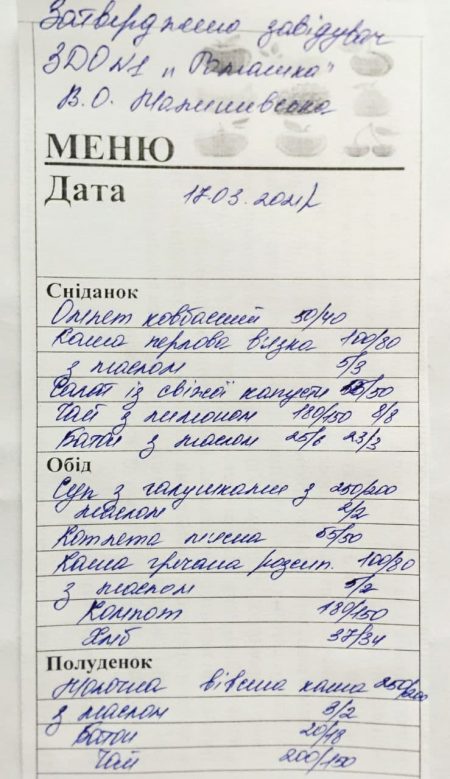 Затверджено завідувач
ЗДО №1 „Ромашка"
В.О.
МЕНЮ
Дата 17.03.2021р
Сніданок
Омлет ковбасний 50/40
Каша перлова вязка 100/80
з маслом 5/3
Салат із свіжої капусти /50
Чай з лимоном 180/150 8/8
Батон з маслом 25/6 23/3
Обід
Суп з галушками з 250/200
маслом 2/2
Котлета 55/50
Каша гречана розсип. 100/80
з маслом 5/2
Компот 180/150
Хліб 37/34
Полуденок
Молочна вівсяна каша 250/200
з маслом 3/2
Батон 20/18
Чай 200/150